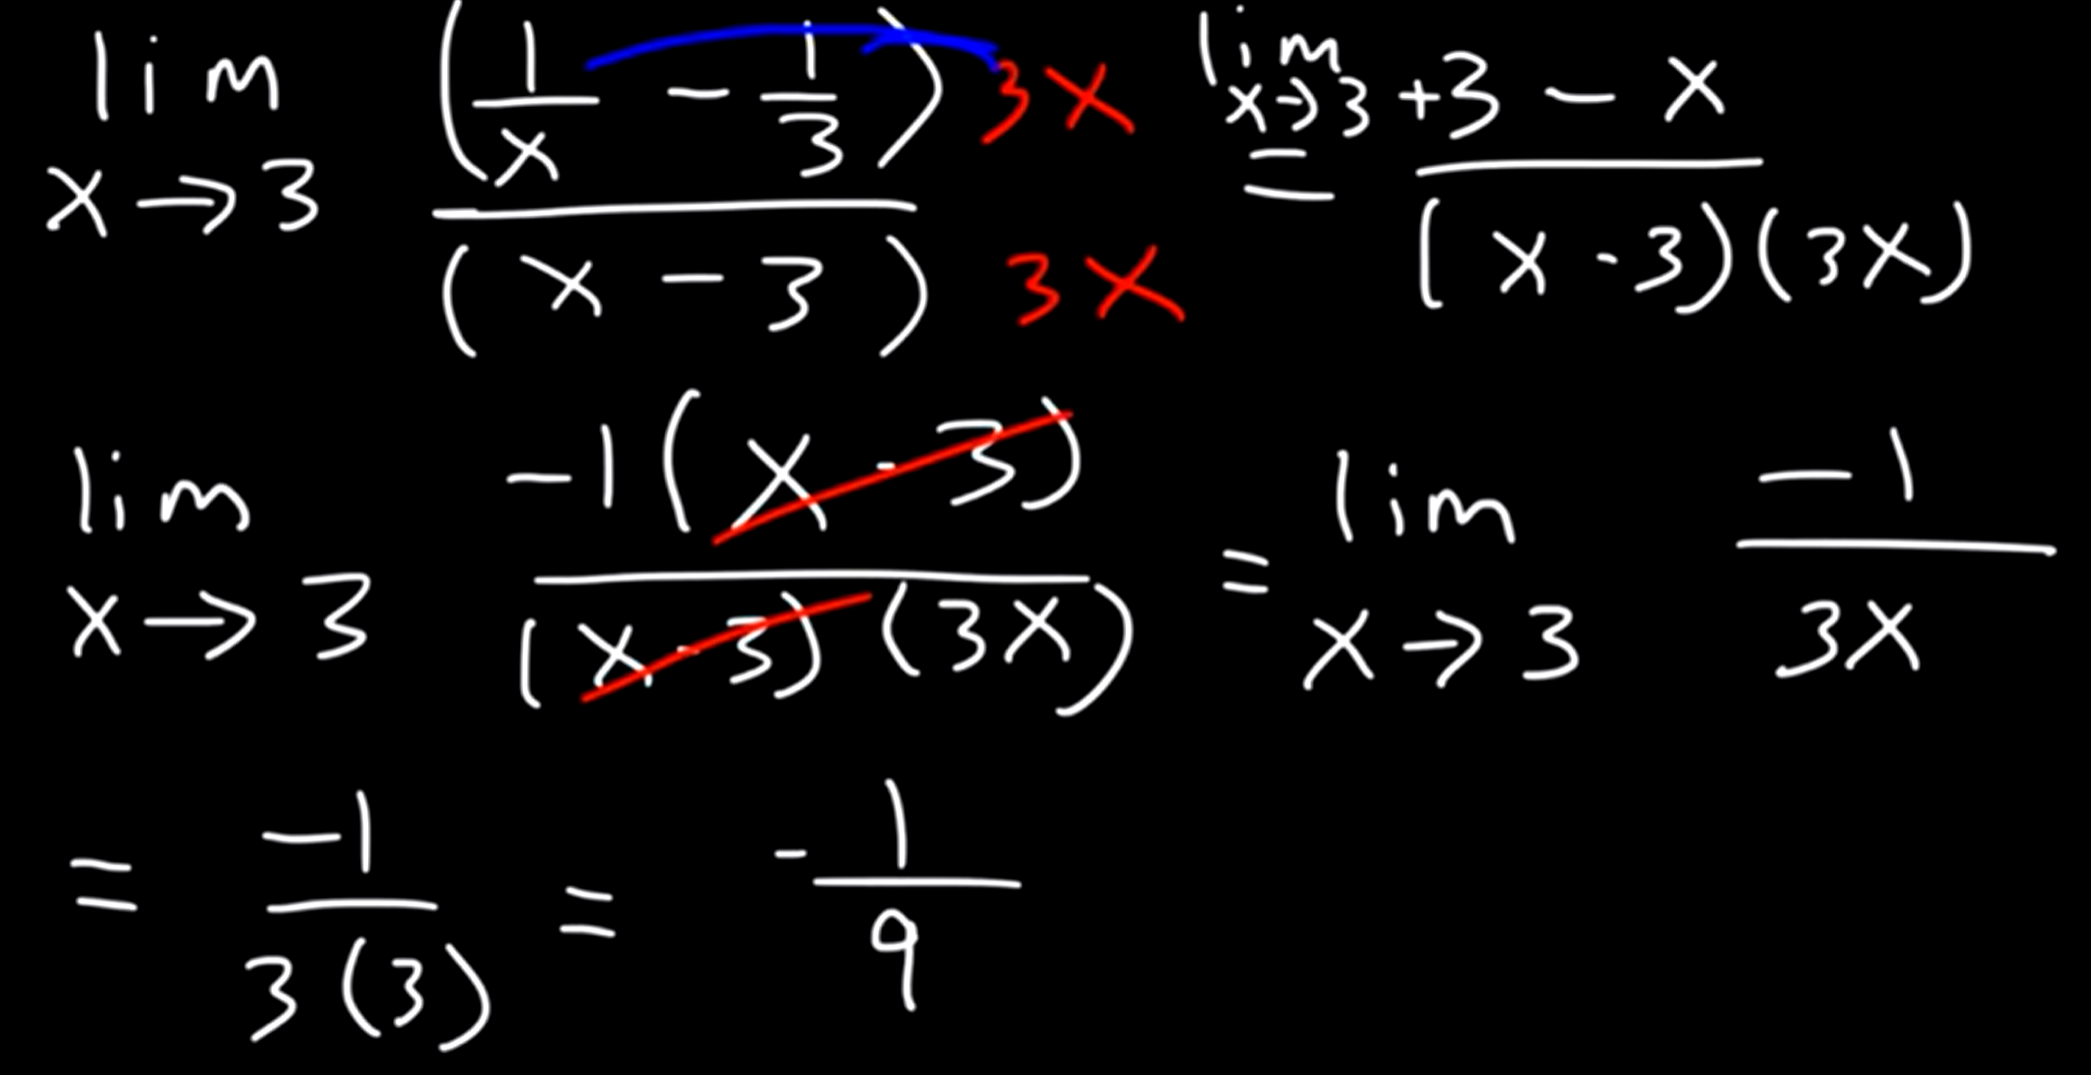 lim x→3 (1/x - 1/3) 3x / (x - 3) 3x = lim x→3 +3 - x / (x - 3)(3x)
lim x→3 -1(x - 3) / (x - 3)(3x) = lim x→3 -1 / 3x
= -1 / 3(3) = -1/9